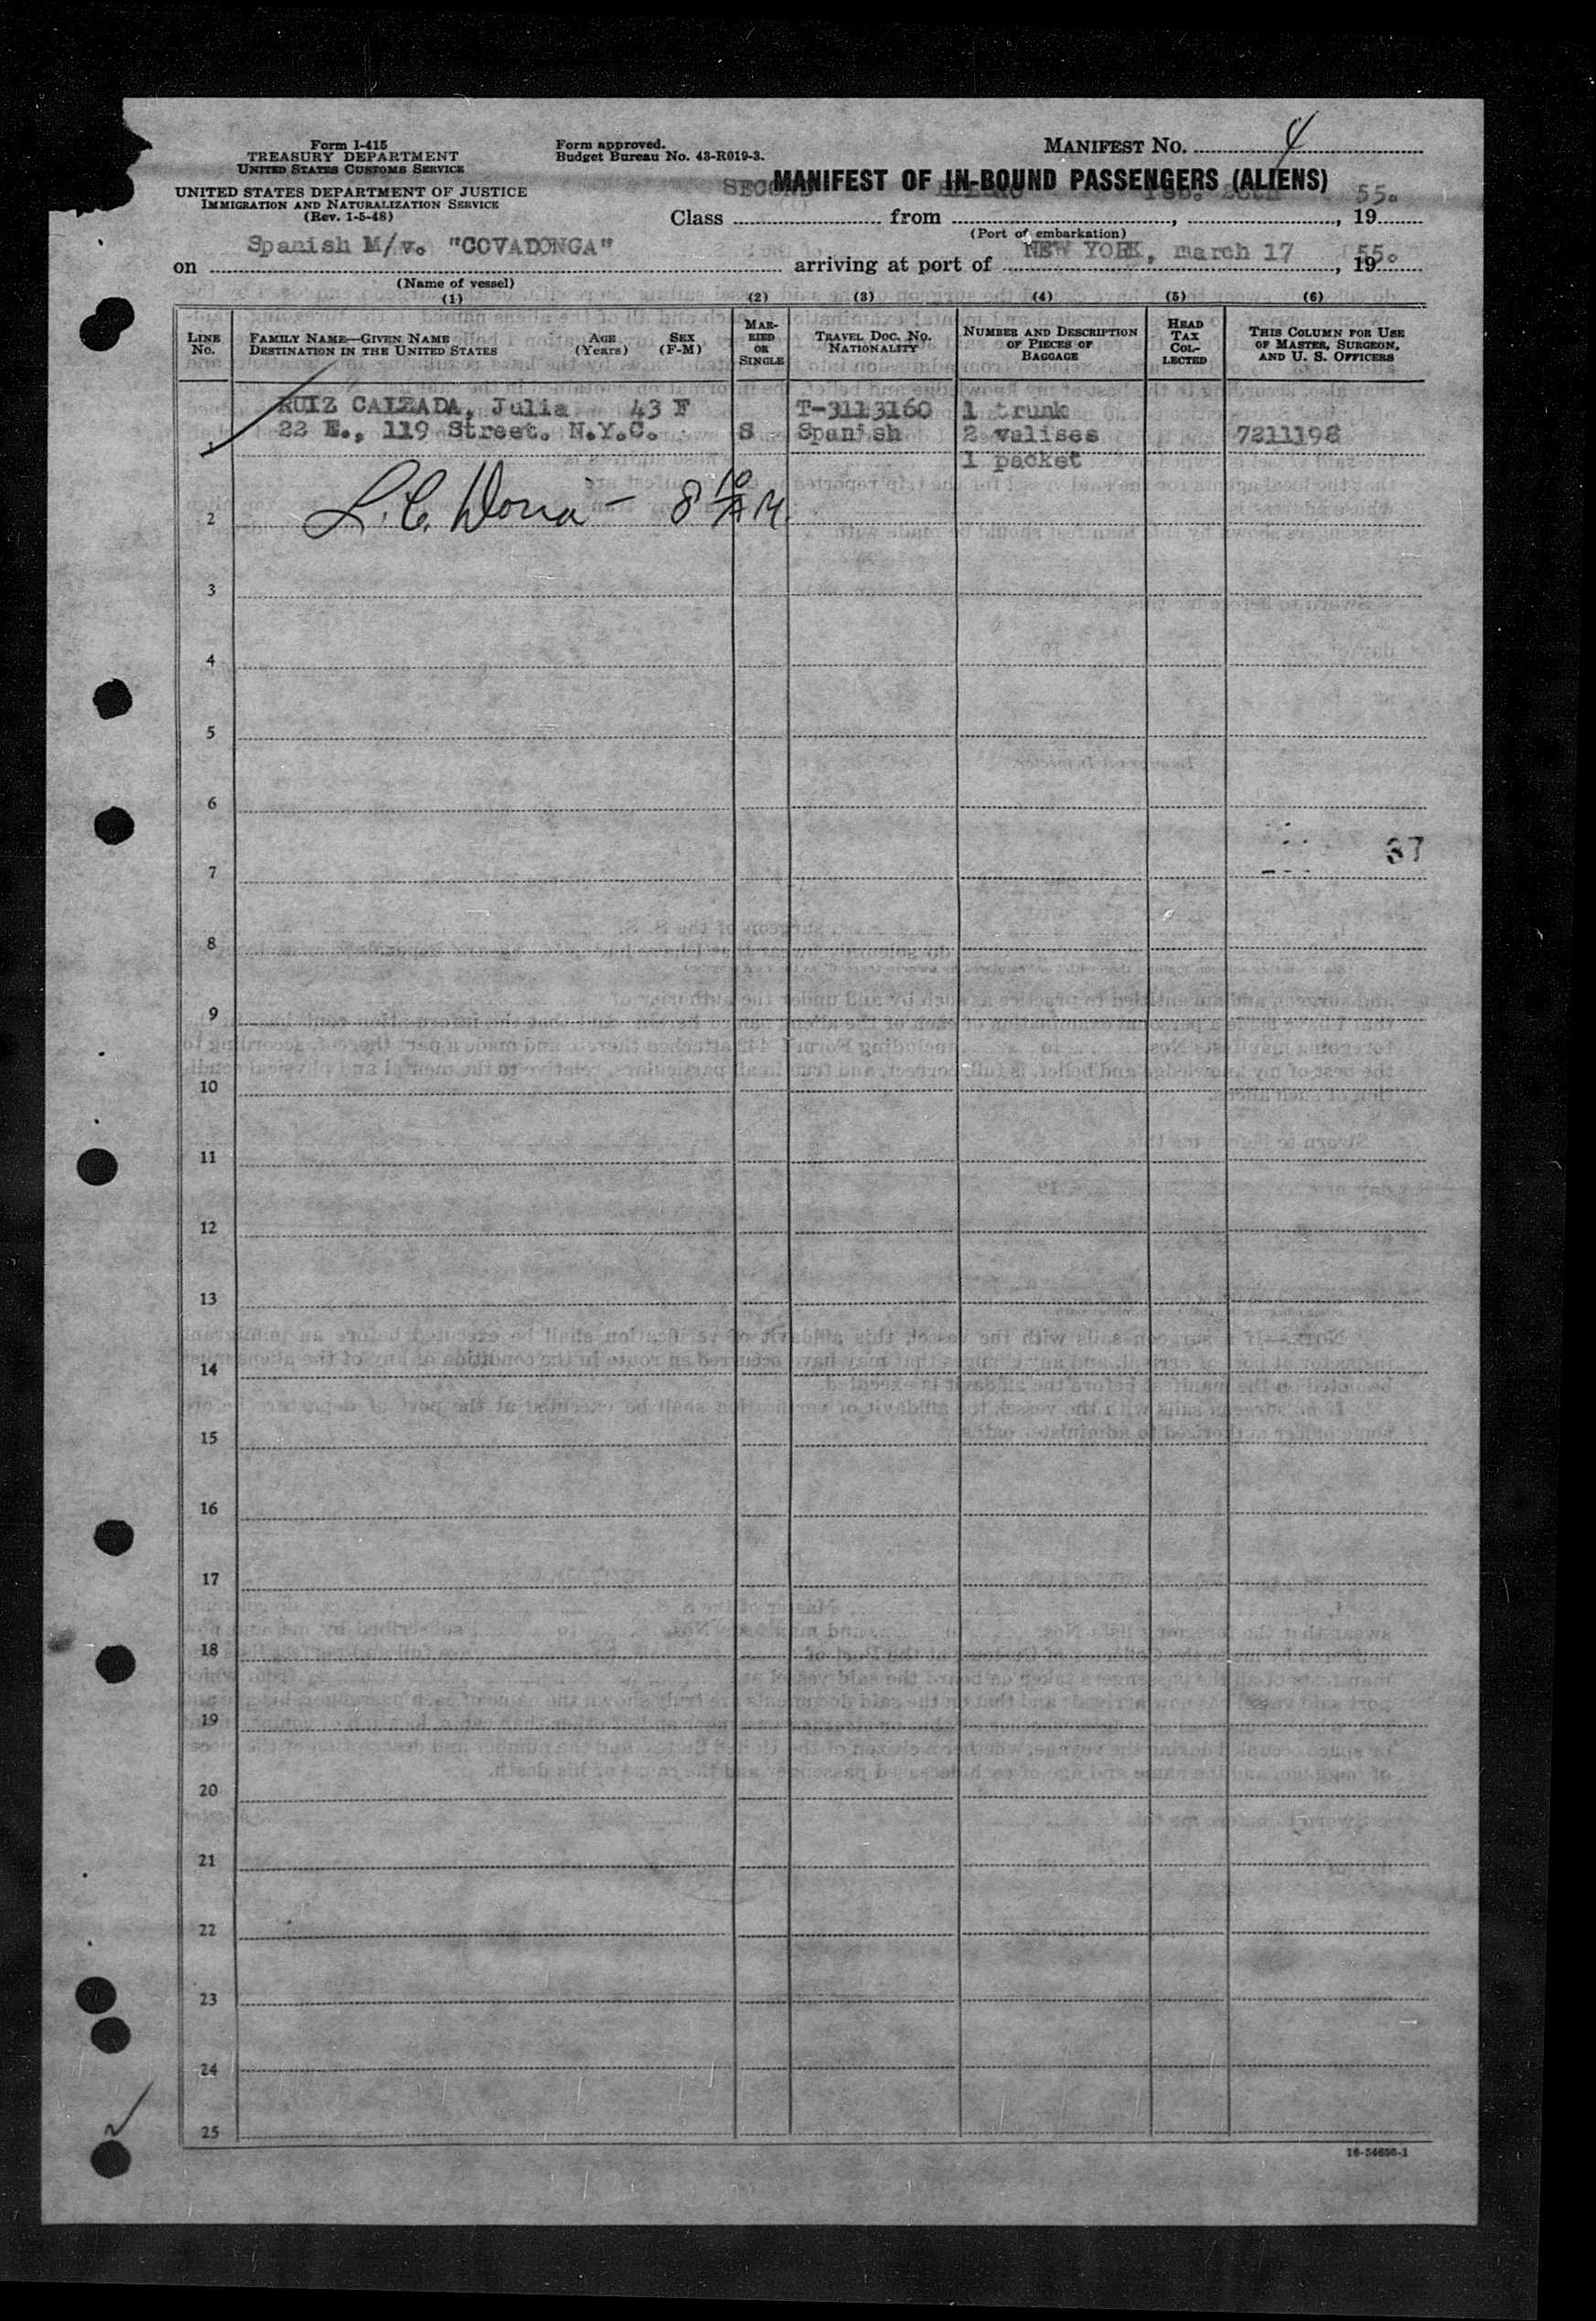 Form I-415
TREASURY DEPARTMENT
UNITED STATES CUSTOMS SERVICE
UNITED STATES DEPARTMENT OF JUSTICE
IMMIGRATION AND NATURALIZATION SERVICE
(Rev. 1-5-48)
Form approved.
Budget Bureau No. 43-R019-3.
MANIFEST No. 4
MANIFEST OF IN-BOUND PASSENGERS (ALIENS)
Class SECOND from , , 19 55.
(Port of embarkation)
on Spanish M/v. "COVADONGA" arriving at port of NEW YORK, march 17, 19 55.
(Name of vessel)
(1) (2) (3) (4) (5) (6)
LINE No.
FAMILY NAME—GIVEN NAME
DESTINATION IN THE UNITED STATES
AGE (Years)
SEX (F-M)
MARRIED OR SINGLE
TRAVEL DOC. NO. NATIONALITY
NUMBER AND DESCRIPTION OF PIECES OF BAGGAGE
HEAD TAX COLLECTED
THIS COLUMN FOR USE OF MASTER, SURGEON, AND U. S. OFFICERS
RUIZ CALZADA, Julia 43 F T-3113160 1 trunk
1 22 E., 119 Street. N.Y.C. S Spanish 2 valises 7211198
1 packet
2 L.C. 8 10 A.M.
3
4
5
6
37
7
8
9
10
11
12
13
14
15
16
17
18
19
20
21
22
23
24
25
16-54656-1